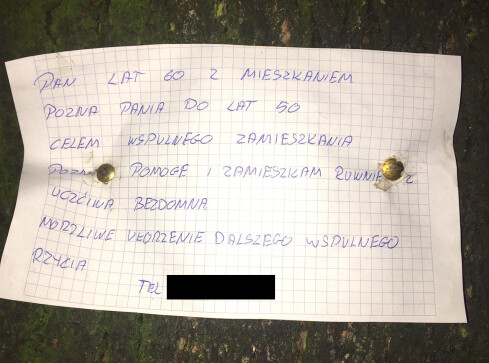 PAN LAT 60 Z MIESZKANIEM
POZNA PANIA DO LAT 50
CELEM WSPULNEGO ZAMIESZKANIA
POMOGE I ZAMIESZKAM Z
UCZCIWA BEZDOMNA
MORZLIWE UŁORZENIE DALSZEGO WSPULNEGO
RZYCIA
TEL